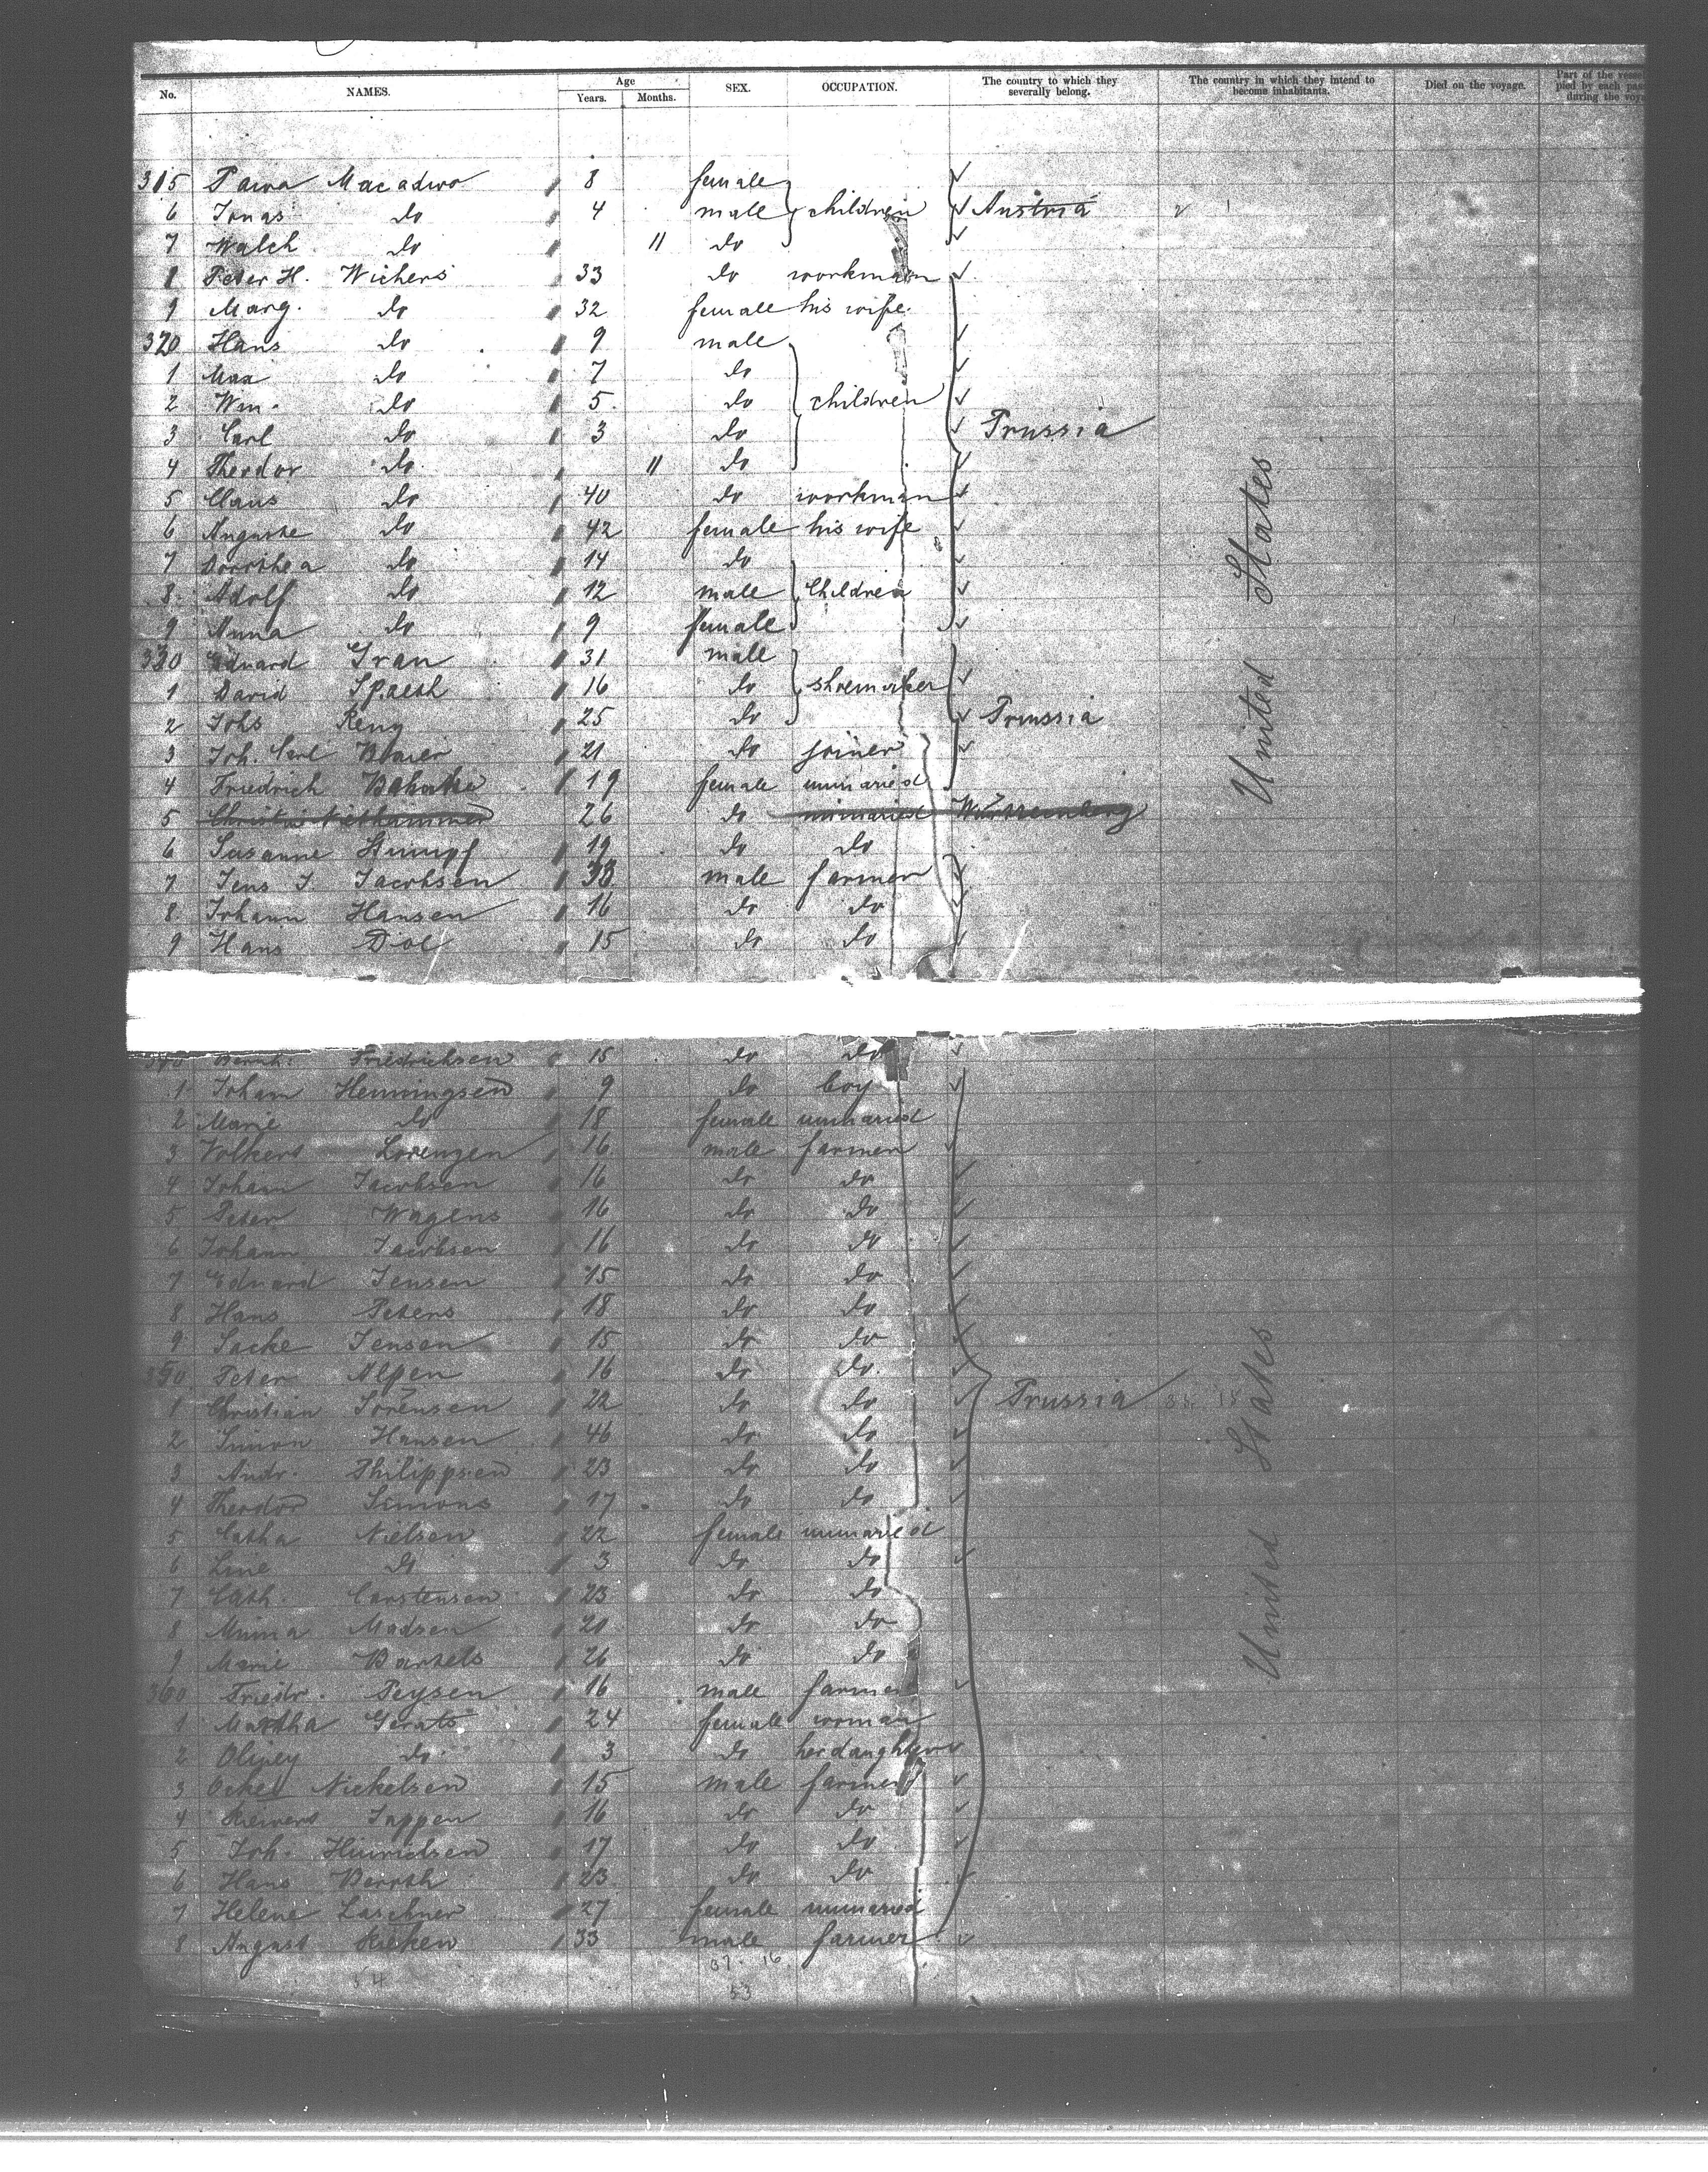 No. NAMES. Age Years. Months. SEX. OCCUPATION. The country to which they severally belong. The country in which they intend to become inhabitants. Died on the voyage. Part of the vessel
pied by each pas
during the voya
315 Macadwo 8 female
6 Jonas do 4 male children Austria
7 Walch do 11 do
8 Peter H. Wichers 33 do workman
9 Marg. do 32 female his wife.
320 Hans do 9 male
1 Max do 7 do
2 Wm. do 5 do children
3 Carl do 3 do Prussia
4 Theodor do 11 do
5 Claus do 40 do workman
6 Auguste do 42 female his wife
7 Dorothea do 14 do
8 Adolf do 12 male Children
9 Anna do 9 female
330 Eduard Gran 31 male
1 David Spaeth 16 do shoemaker
2 Johs Reng 25 do Prussia
3 Joh. Carl 21 do joiner
4 Friedrich 19 female unmaried
5 26 do unmaried Württemberg
6 Susanne Stumpf 19 do do
7 Jens J. Jacobsen 38 male farmer
8 Johann Hansen 16 do do
9 Hans 15 do do
340 Friedrichsen 15 do do
1 Joham Henningsen 9 do boy
2 Marie do 18 female unmaried
3 Volkert Lorenzen 16 male farmer
4 Joham Jacobsen 16 do do
5 Peter Wagens 16 do do
6 Johann Jacobsen 16 do do
7 Eduard Jensen 15 do do
8 Hans Peters 18 do do
9 Jensen 15 do do
350 Peter Alpen 16 do do.
1 Christian Sörensen 22 do do Prussia
2 Simon Hansen 46 do do
3 Andr. Philippsen 23 do do
4 Theodor Simons 17 do do
5 Catha Nielsen 22 female unmaried
6 Line do 3 do do
7 Cath. Carstensen 23 do do
8 Minna Madsen 20 do do
9 Marie Bartels 26 do do
360 Friedr. Peysen 16 male farmer
1 Martha Gerats 24 female woman
2 do 3 do her daughter
3 Ocke Nickelsen 15 male farmer
4 Jappen 16 do do
5 Joh. Hinrichsen 17 do do
6 Hans 23 do do
7 Helene Laschner 27 female unmaried
8 August Rieken 33 male farmer
37. 16
54
53
United States
United States